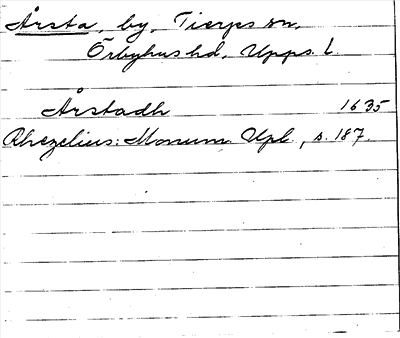 Årsta, by, Tierps sn,
Örbyhus hd, Upps. l.
Årstadh 1635
Rhezelius: Monum. Upl., s. 187.